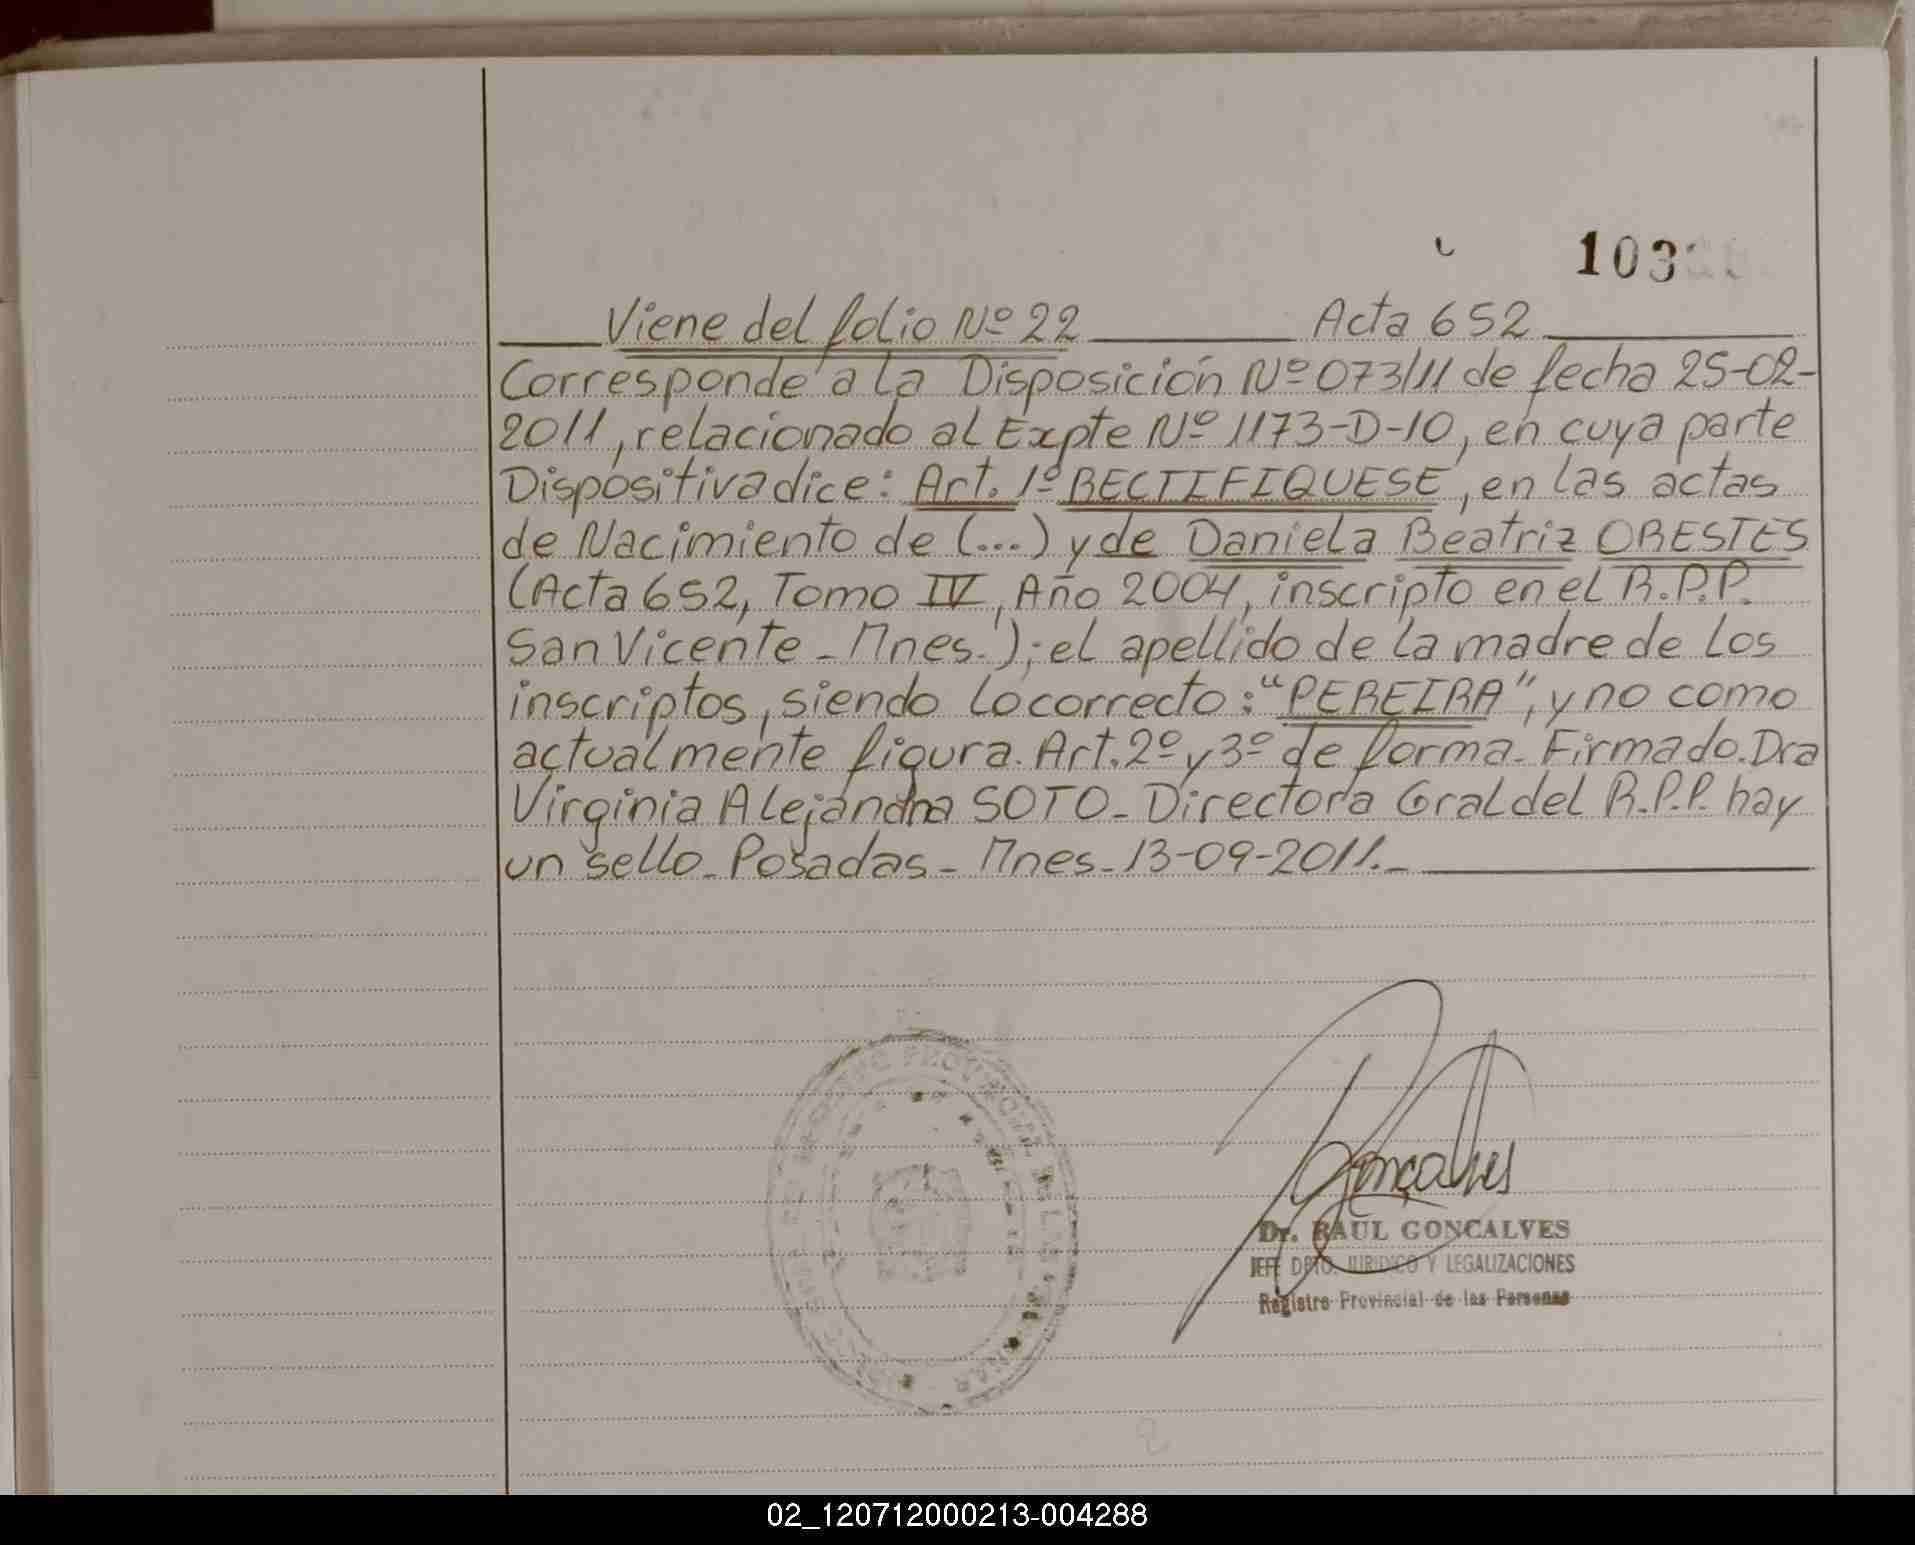 103
Viene del folio Nº 22 Acta 652
Corresponde a la Disposición Nº 073/11 de fecha 25-02-
2011, relacionado al Expte Nº 1173-D-10, en cuya parte
Dispositiva dice: Art. 1º RECTIFIQUESE, en las actas
de Nacimiento de (...) y de Daniela Beatriz ORESTES
(Acta 652, Tomo IV, Año 2004, inscripto en el R.P.P.
San Vicente - Mnes.); el apellido de la madre de los
inscriptos, siendo lo correcto: "PEREIRA", y no como
actualmente figura. Art. 2º y 3º de forma - Firmado. Dra
Virginia Alejandra SOTO - Directora Gral del R.P.P. hay
un sello - Posadas - Mnes - 13-09-2011.-
Goncalves
Dr. RAUL GONCALVES
JEFE DPTO. JURIDICO Y LEGALIZACIONES
Registro Provincial de las Personas
02_120712000213-004288